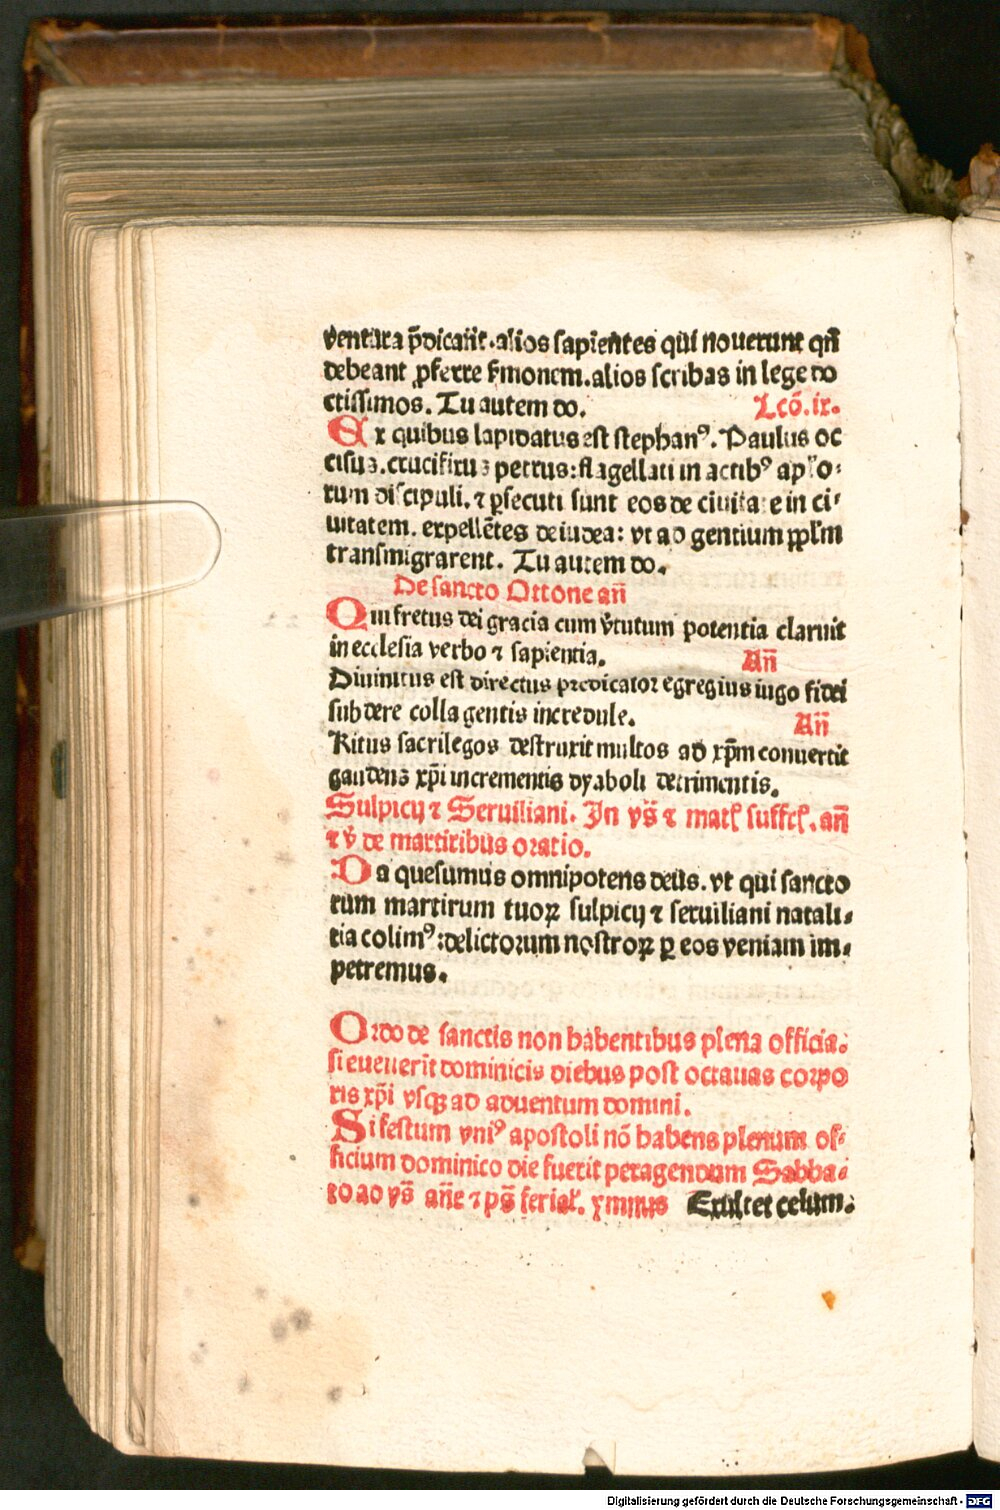 ventura p̄dicārit. alios sapientes qui nouerunt qn̄
debeant ꝓferre s̓monem. alios scribas in lege do
ctissimos. Tu autem do. Lcō. ix.
Ex quibus lapidatus est stephanꝰ. Paulus oc
cisus. crucifixus petrus: flagellati in actibꝰ aplo:
rum discipuli. ⁊ ꝑsecuti sunt eos de ciuitate in ci⸗
uitatem. expellētes de iudea: vt ad gentium ppl̄m
transmigrarent. Tu autem do.
De sancto Ottone an̄
Qui fretus dei gracia cum v̓tutum potentia claruit
in ecclesia verbo ⁊ sapientia. An̄
Diuinitus est directus predicator egregius iugo fidei
subdere colla gentis incredule. An̄
Ritus sacrilegos destruxit multos ad xp̄m conuertit
gaudens xp̄i incrementis dyaboli detrimentis.
Sulpicij ⁊ Seruiliani. In vs̄ ⁊ matꝭ suffrꝭ. an̄
⁊ v̓ de martiribus oratio.
Da quesumus omnipotens deus. vt qui sancto
rum martirum tuoꝝ sulpicij ⁊ seruiliani natali⸗
tia colimꝰ: delictorum nostroꝝ ꝑ eos veniam im⸗
petremus.
Ordo de sanctis non habentibus plena officia.
si euenerīt dominicis diebus post octauas corpo
ris xp̄i vsqꝫ ad aduentum domini.
Si festum vniꝰ apostoli nō habens plenum of⸗
ficium dominico die fuerit peragendum Sabba⸗
to ad vs̄ an̄e ⁊ ps̄ ferialꝭ. ymnus Exultet celum.
Digitalisierung gefördert durch die Deutsche Forschungsgemeinschaft - DFG